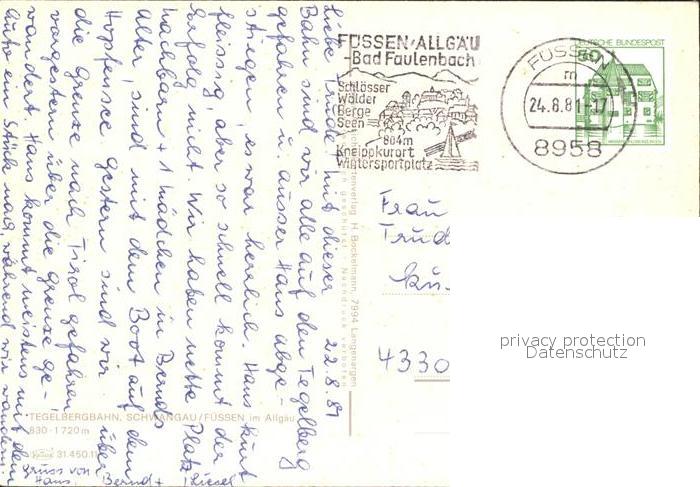 22.8.81
Liebe Trude! Mit dieser
Bahn sind wir alle auf den Tegelberg
gefahren u. ausser Hans abge-
stiegen, es war herrlich. Hans kurt
fleissig, aber so schnell kommt der
Erfolg nicht. Wir haben nette Platz
nachbarn + 1 Mädchen in Bernds
Alter, sind mit dem Boot auf dem
Hopfensee. Gestern sind wir über
die Grenze nach Tirol gefahren
vorgestern über die Grenze ge-
wandert. Hans kommt meistens mit dem
Auto ein Stück nach, während wir wandern.
Gruss von
Hans, Bernd + Liesel
FÜSSEN/ALLGÄU
-Bad Faulenbach
Schlösser
Wälder
Berge
Seen
804m
Kneippkurort
Wintersportplatz
FÜSSEN
m
24.8.81-17
8958
DEUTSCHE BUNDESPOST
50
Frau
Trud
4330
privacy protection
Datenschutz
H. Bockelmann, 7994 Langenargen
Nachdruck verboten
TEGELBERGBAHN, SCHWANGAU/FÜSSEN im Allgäu
830-1720 m
31.450.11